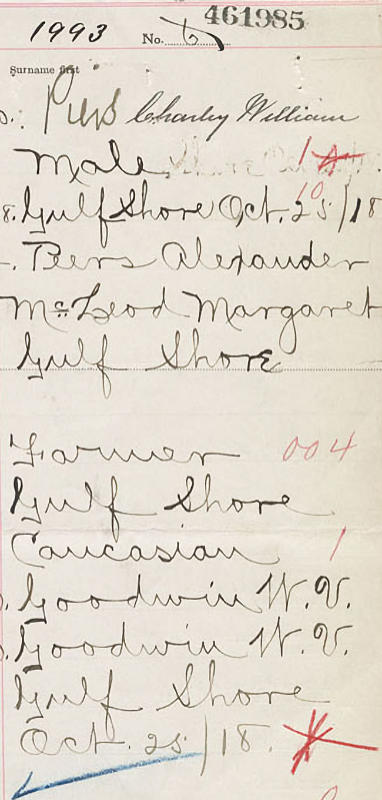 461985
1993 No. 6
Surname first
Piers Charley William
Male 1
10
8. Gulf Shore Oct. 25/18
Piers Alexander
McLeod Margaret
Gulf Shore
Farmer 004
Gulf Shore
Caucasian 1
Goodwin W. V.
Goodwin W. V.
Gulf Shore
Oct. 25/18.